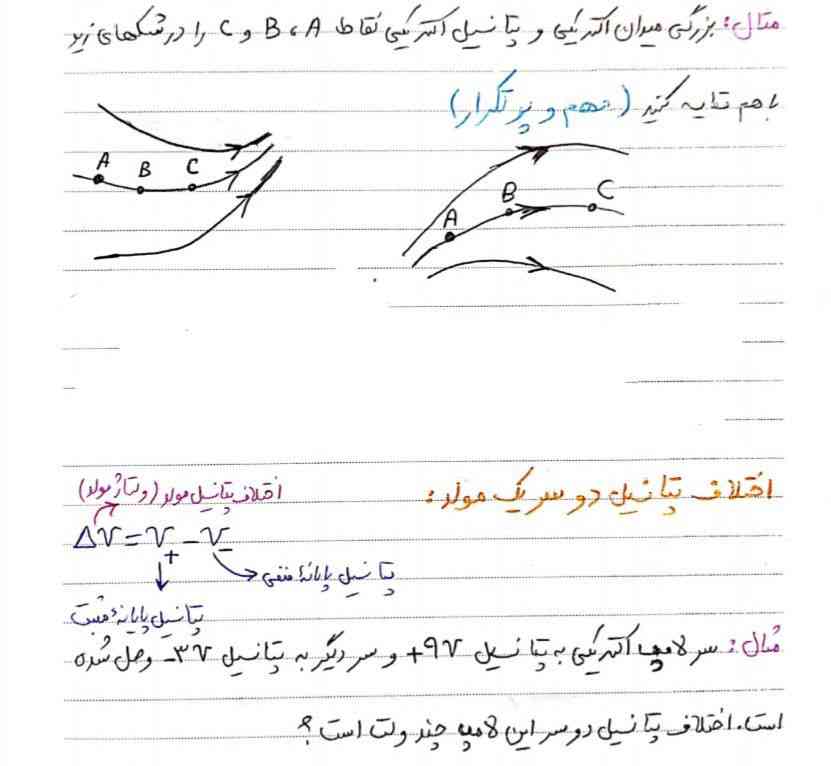 مثال: بزرگی میدان الکتریکی و پتانسیل الکتریکی نقاط A، B و C را در شکلهای زیر
با هم مقایسه کنید (مهم و پر تکرار)
A B C
A B C
اختلاف پتانسیل دو سر یک مولد:
اختلاف پتانسیل مولد (ولتاژ مولد)
ΔV = V₊ - V₋
پتانسیل پایانهٔ منفی
پتانسیل پایانهٔ مثبت
مثال: سر لامپ الکتریکی به پتانسیل +۹V و سر دیگر به پتانسیل -۳V وصل شده
است. اختلاف پتانسیل دو سر این لامپ چند ولت است؟